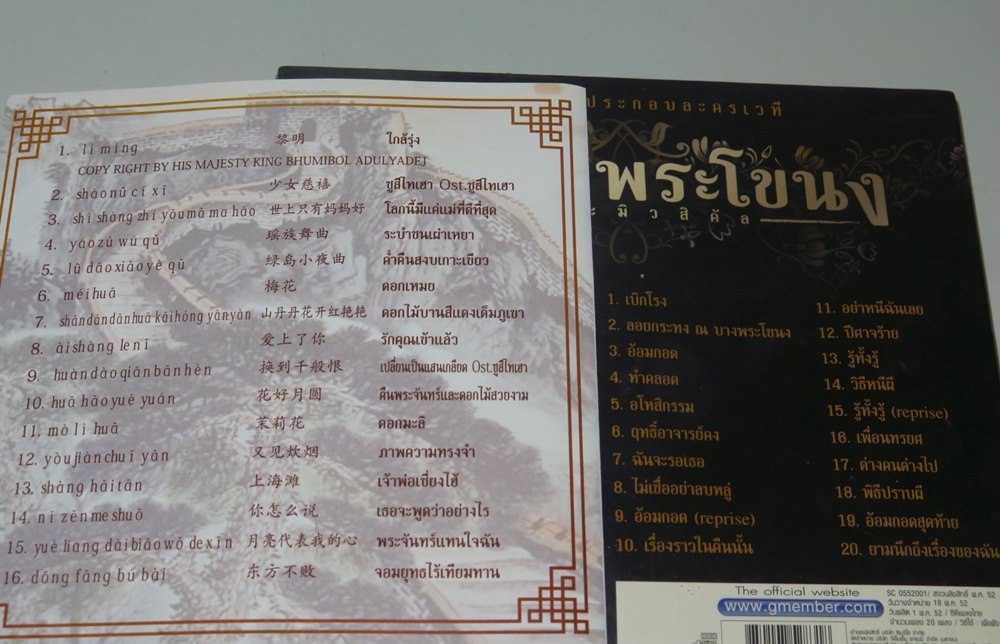 1. lí míng 黎明 ใกล้รุ่ง
COPY RIGHT BY HIS MAJESTY KING BHUMIBOL ADULYADEJ
2. shàonǔ cí xī 少女慈禧 ซูสีไทเฮา Ost.ซูสีไทเฮา
3. shì shàng zhǐ yǒu mā ma hǎo 世上只有妈妈好 โลกนี้มีแค่แม่ที่ดีที่สุด
4. yáozú wú qǔ 瑶族舞曲 ระบำชนเผ่าเหยา
5. lǜ dǎo xiǎo yè qǔ 绿岛小夜曲 ค่ำคืนสงบเกาะเขียว
6. méi huā 梅花 ดอกเหมย
7. shāndāndānhuā kāihóng yànyàn 山丹丹花开红艳艳 ดอกไม้บานสีแดงเต็มภูเขา
8. ài shàng le nǐ 爱上了你 รักคุณเข้าแล้ว
9. huàn dào qiān bān hèn 换到千般恨 เปลี่ยนเป็นแสนเกลียด Ost.ซูสีไทเฮา
10. huā hǎo yuè yuán 花好月圆 คืนพระจันทร์และดอกไม้สวยงาม
11. mò lì huā 茉莉花 ดอกมะลิ
12. yòu jiàn chuī yān 又见炊烟 ภาพความทรงจำ
13. shàng hǎi tān 上海滩 เจ้าพ่อเซี่ยงไฮ้
14. nǐ zěn me shuō 你怎么说 เธอจะพูดว่าอย่างไร
15. yuè liang dài biǎo wǒ de xīn 月亮代表我的心 พระจันทร์แทนใจฉัน
16. dōng fāng bú bài 东方不败 จอมยุทธไร้เทียมทาน
ประกอบละครเวที
พระโขนง
ะมิวสิคัล
1. เบิกโรง
2. ลอยกระทง ณ บางพระโขนง
3. อ้อมกอด
4. ทำคลอด
5. อโหสิกรรม
6. ฤทธิ์อาจารย์คง
7. ฉันจะรอเธอ
8. ไม่เชื่ออย่าลบหลู่
9. อ้อมกอด (reprise)
10. เรื่องราวในคืนนั้น
11. อย่าหนีฉันเลย
12. ปีศาจร้าย
13. รู้ทั้งรู้
14. วิธีหนีผี
15. รู้ทั้งรู้ (reprise)
16. เพื่อนทรยศ
17. ต่างคนต่างไป
18. พิธีปราบผี
19. อ้อมกอดสุดท้าย
20. ยามนึกถึงเรื่องของฉัน
The official website
www.gmember.com
SC 0552001/ สงวนลิขสิทธิ์ พ.ค. 52
วันวางจำหน่าย 18 พ.ค. 52
วันผลิต 1 พ.ค. 52 / ซีดีเพลงไทย
จำนวนเพลง 20 เพลง / วิธีใช้